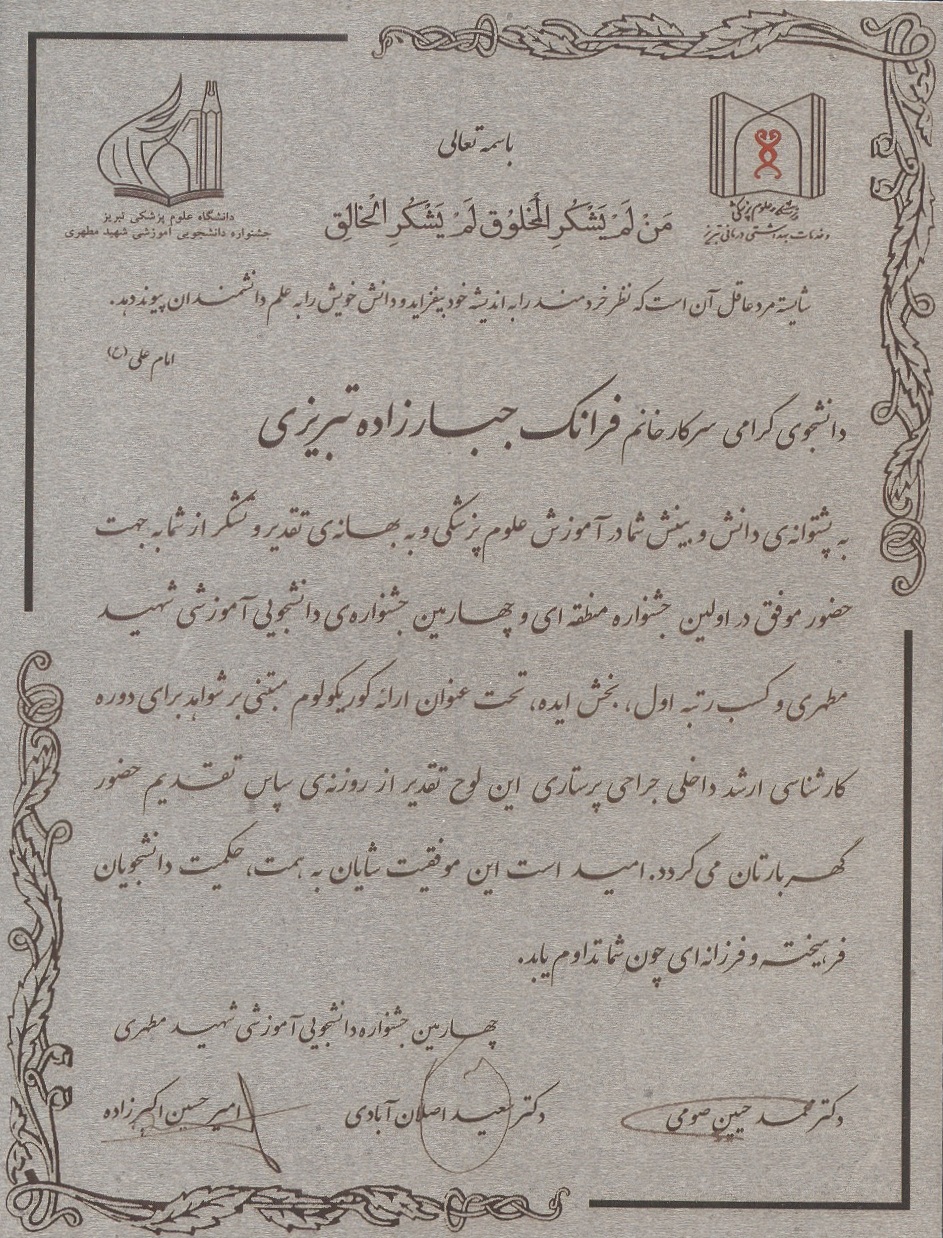 باسمه تعالی
دانشگاه علوم پزشکی
و خدمات بهداشتی درمانی تبریز
دانشگاه علوم پزشکی تبریز
جشنواره دانشجویی آموزشی شهید مطهری
مَنْ لَمْ یَشْکُرِ الْمَخْلُوق لَمْ یَشْکُرِ الْخالِق
شایسته مرد عاقل آن است که نظر خردمند را به اندیشه خود بیفزاید و دانش خویش را به علم دانشمندان پیوند دهد.
امام علی (ع)
دانشجوی گرامی سرکار خانم فرانک جبارزاده تبریزی
به پشتوانه‌ی دانش و بینش شما در آموزش علوم پزشکی و به بهانه‌ی تقدیر و تشکر از شما به جهت
حضور موفق در اولین جشنواره منطقه ای و چهارمین جشنواره‌ی دانشجویی آموزشی شهید
مطهری و کسب رتبه اول، بخش ایده، تحت عنوان ارائه کوریکولوم مبتنی بر شواهد برای دوره
کارشناسی ارشد داخلی جراحی پرستاری این لوح تقدیر از روزنه‌ی سپاس تقدیم حضور
گهربارتان می گردد. امید است این موفقیت شایان به همت، حکمیت دانشجویان
فرهیخته و فرزانه ای چون شما تداوم یابد.
چهارمین جشنواره دانشجویی آموزشی شهید مطهری
دکتر محمد حسین صومی
دکتر سعید اصلان آبادی
امیر حسین اکبرزاده